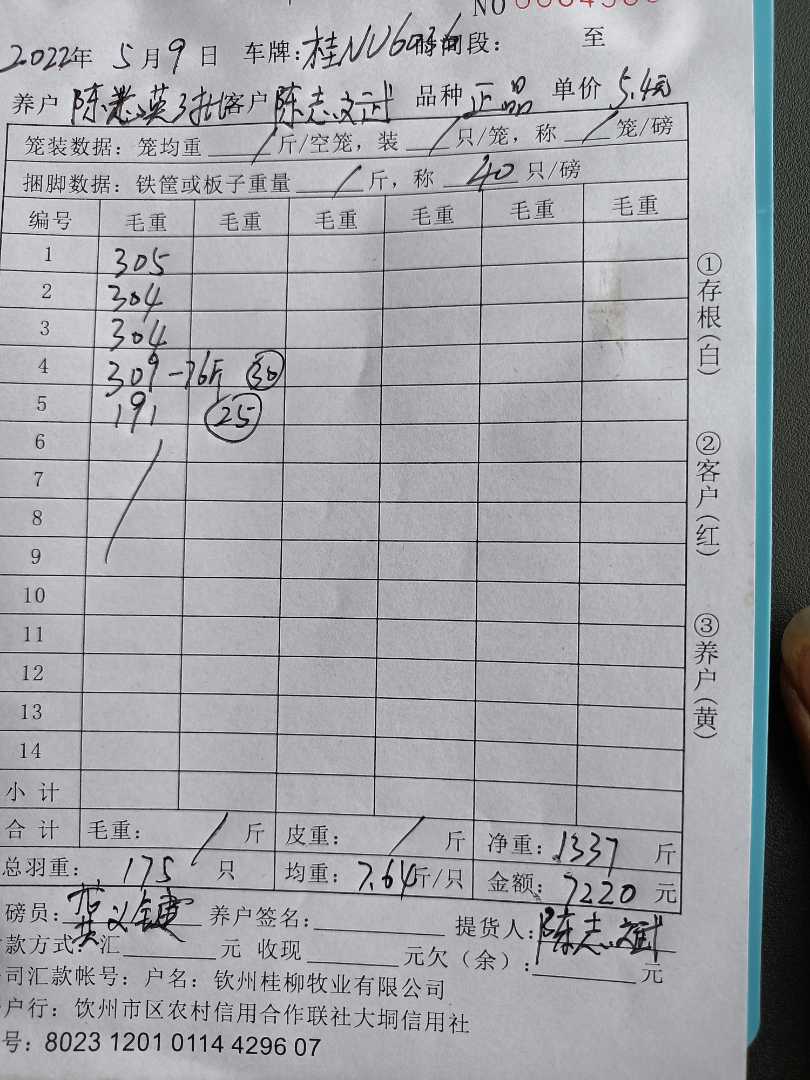 NO
2022年 5月9日 车牌:桂NU6 时间段: 至
养户 陈 英3批 客户 陈志斌 品种 正品 单价 5.4元
笼装数据: 笼均重 / 斤/空笼, 装 / 只/笼, 称 / 笼/磅
捆脚数据: 铁筐或板子重量 / 斤, 称 40 只/磅
编号 毛重 毛重 毛重 毛重 毛重 毛重
1 305
2 304
3 304
4 309-76斤 30
5 191 25
6
7
8
9
10
11
12
13
14
小计
合计 毛重: / 斤 皮重: / 斤 净重: 1337 斤
总羽重: 175 只 均重: 7.64斤/只 金额: 7220 元
磅员: 养户签名: 提货人: 陈志斌
款方式: 汇 元 收现 元欠(余): 元
司汇款帐号: 户名: 钦州桂柳牧业有限公司
户行: 饮州市区农村信用合作联社大垌信用社
号: 8023 1201 0114 4296 07
①存根(白)
②客户(红)
③养户(黄)